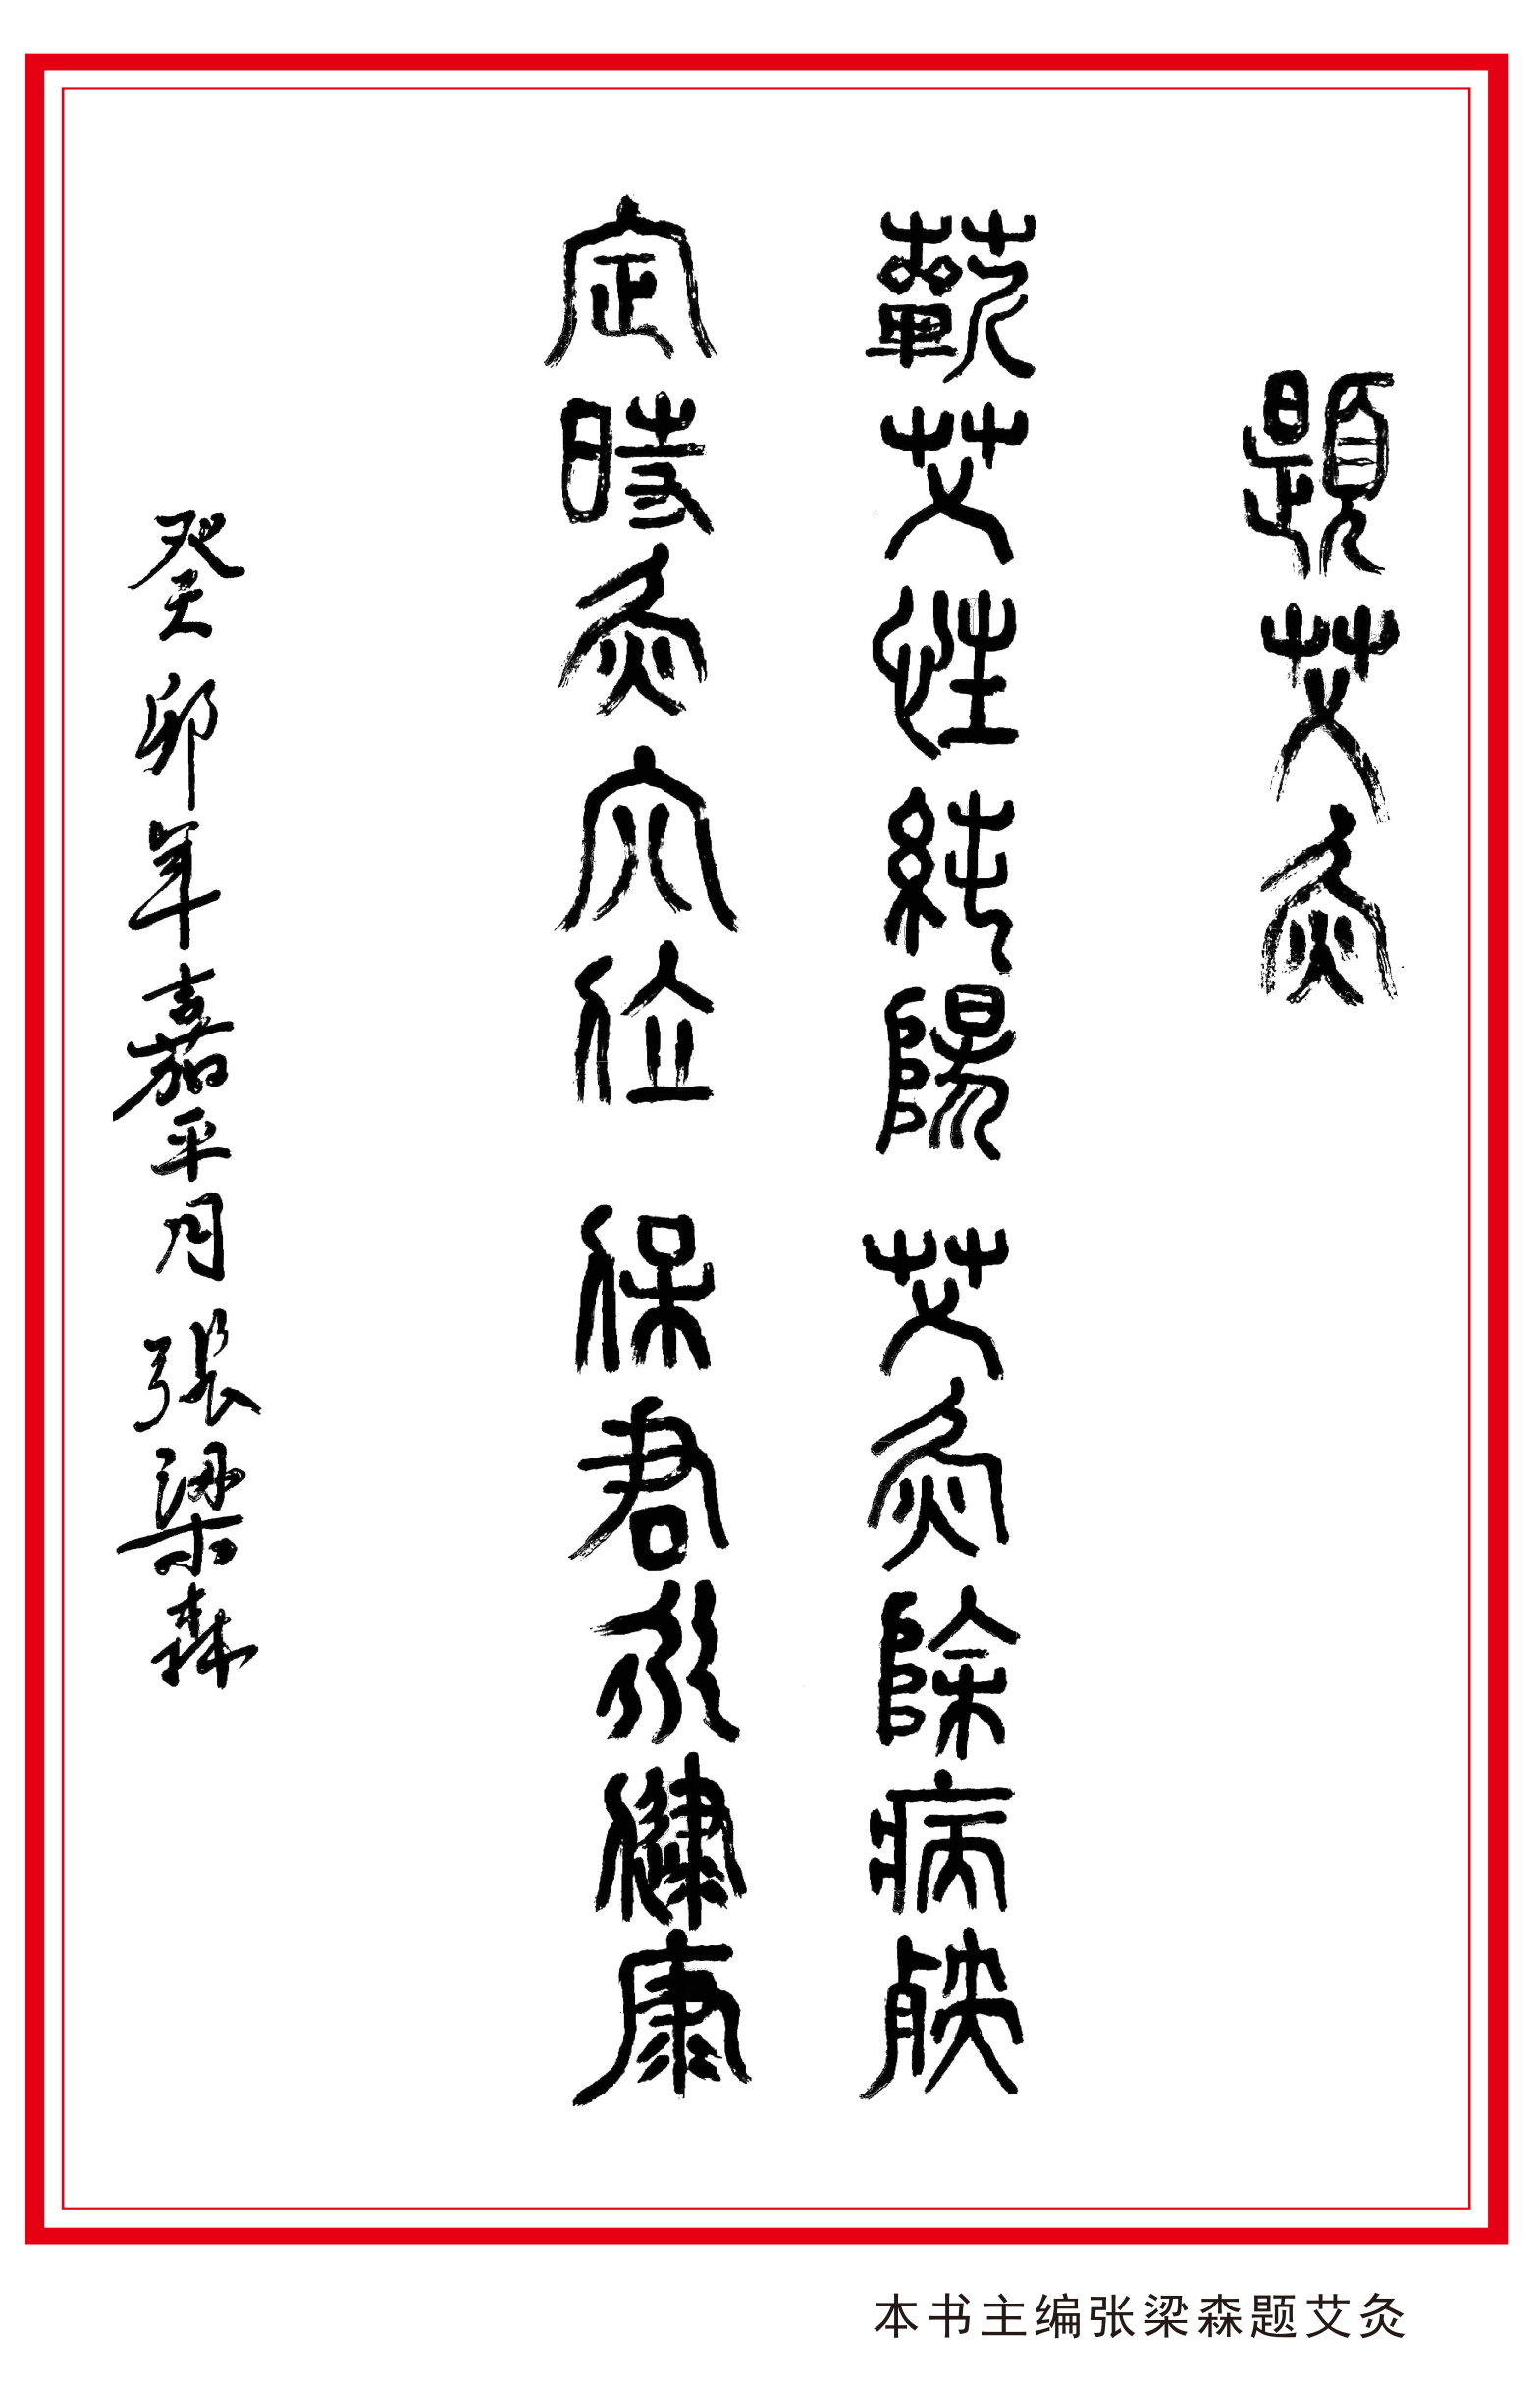 題艾灸
蘄艾性純陽 艾灸除病殃
定時灸穴位 保君永健康
癸卯年嘉平月 張梁森
本书主编张梁森题艾灸